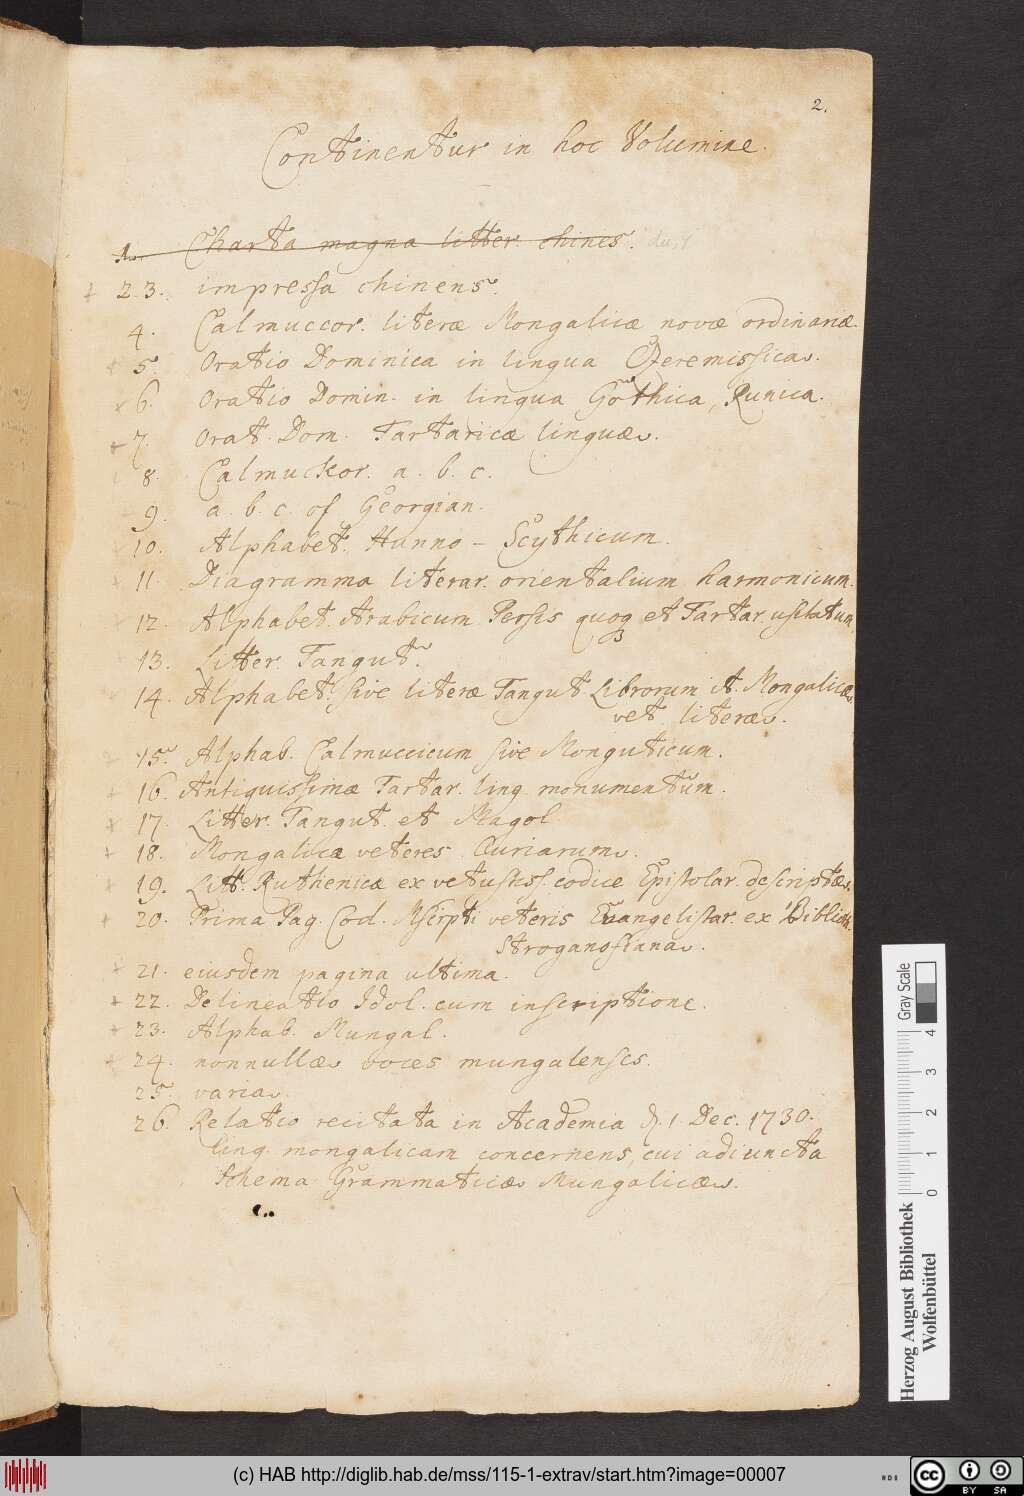 2.
Continentur in hoc Volumine.
1. Charta magna litter. chines.
2. 3. impressa chinens.
4. Calmuccor. literæ Mongalicæ novæ ordinariæ.
5. Oratio Dominica in lingua Czeremissica.
6. Oratio Domin. in lingua Gothica, Runica.
7. Orat. Dom. Tartaricæ linguæ.
8. Calmuckor. a. b. c.
9. a. b. c. of Georgian.
10. Alphabet. Hunno - Scythicum.
11. Diagramma literar. orientalium harmonicum.
12. Alphabet. Arabicum Persis quoq et Tartar. usitatum.
13. Litter. Tangut.
14. Alphabet. sive literæ Tangut. Librorum it. Mongalicæ
vet. literæ.
15. Alphab. Calmuccicum sive Monguticum.
16. Antiquissimæ Tartar. ling. monumentum.
17. Litter. Tangut. et Magol.
18. Mongalicæ veteres Curiarum.
19. Litt. Ruthenicæ ex vetustiss. codice Epistolar. descriptæ.
20. Prima Pag. Cod. Mscrpti veteris Euangelistar. ex Biblioth.
Stroganofiana.
21. eiusdem pagina ultima.
22. Delineatio Idol. cum inscriptione.
23. Alphab. Mungal.
24. nonnullæ voces mungalenses.
25. varia.
26. Relatio recitata in Academia d. 1. Dec. 1730.
ling. mongalicam concernens, cui adiuncta
Schema Grammaticæ Mungalicæ.
Gray Scale
0 1 2 3 4
Herzog August Bibliothek
Wolfenbüttel
(c) HAB http://diglib.hab.de/mss/115-1-extrav/start.htm?image=00007
cc BY SA